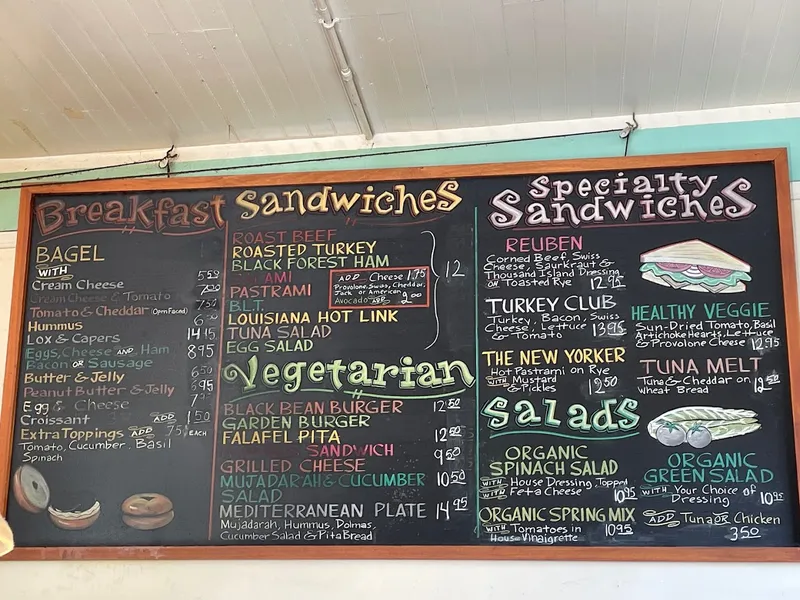 Breakfast
BAGEL
WITH
Cream Cheese 5.50
Cream Cheese & Tomato
Tomato & Cheddar (Open Faced) 7.50
Hummus
Lox & Capers 14.45
Eggs, Cheese AND Ham 8.95
Bacon OR Sausage
Butter & Jelly
Peanut Butter & Jelly
Egg & Cheese
Croissant ADD 1.50
Extra Toppings ADD .75 EACH
Tomato, Cucumber, Basil
Spinach
Sandwiches
ROAST BEEF
ROASTED TURKEY
BLACK FOREST HAM
AMI
PASTRAMI
B.L.T.
LOUISIANA HOT LINK
TUNA SALAD
EGG SALAD
12
ADD Cheese 1.75
Provolone, Swiss, Cheddar,
Jack or American
Avocado ADD 2.00
Vegetarian
BLACK BEAN BURGER 12.50
GARDEN BURGER
FALAFEL PITA 12.50
SANDWICH 9.50
GRILLED CHEESE
MUJADARAH & CUCUMBER 10.50
SALAD
MEDITERRANEAN PLATE 14.95
Mujadarah, Hummus, Dolmas,
Cucumber Salad & Pita Bread
Specialty
Sandwiches
REUBEN
Corned Beef, Swiss
Cheese, Saurkraut &
Thousand Island Dressing
ON Toasted Rye 12.95
TURKEY CLUB
Turkey, Bacon, Swiss
Cheese, Lettuce 13.95
& Tomato
THE NEW YORKER
Hot Pastrami on Rye
WITH Mustard
& Pickles 12.50
HEALTHY VEGGIE
Sun-Dried Tomato, Basil
Artichoke Hearts, Lettuce
& Provolone Cheese 12.95
TUNA MELT
Tuna & Cheddar on 12.50
Wheat Bread
Salads
ORGANIC
SPINACH SALAD
WITH House Dressing, Topped
WITH Feta Cheese 10.95
ORGANIC SPRING MIX
WITH Tomatoes in 10.95
House Vinaigrette
ORGANIC
GREEN SALAD
WITH Your Choice of
Dressing 10.95
ADD Tuna OR Chicken
3.50